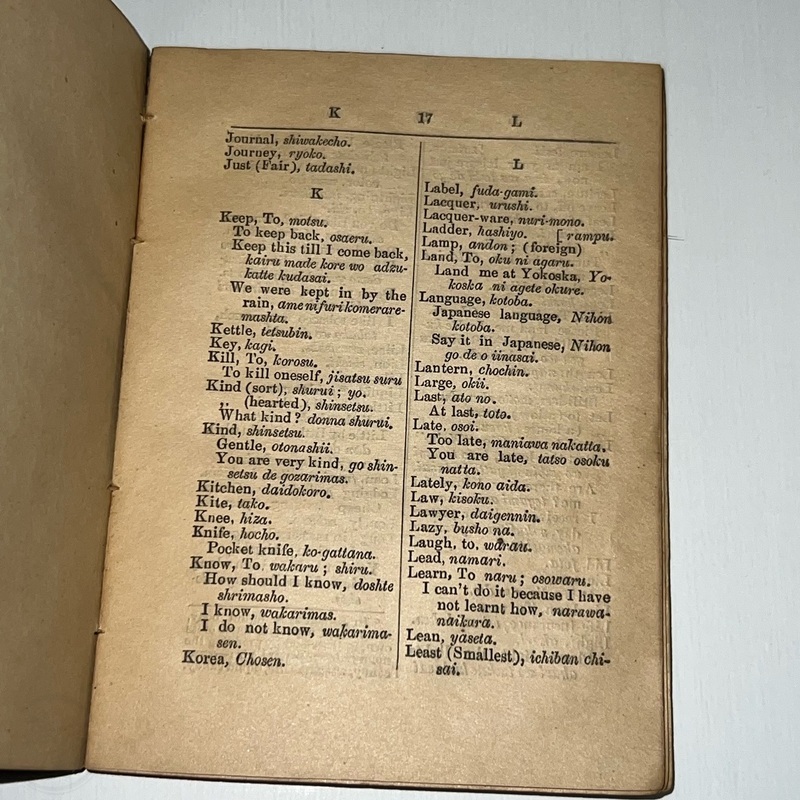 K 17 L
Journal, shiwakecho.
Journey, ryoko.
Just (Fair), tadashi.
K
Keep, To, motsu.
To keep back, osaeru.
Keep this till I come back,
kairu made kore wo adzu-
katte kudasai.
We were kept in by the
rain, ame ni furikomerare-
mashta.
Kettle, tetsubin.
Key, kagi.
Kill, To, korosu.
To kill oneself, jisatsu suru
Kind (sort), shurui; yo.
,, (hearted), shinsetsu.
What kind? donna shurui.
Kind, shinsetsu.
Gentle, otonashii.
You are very kind, go shin-
setsu de gozarimas.
Kitchen, daidokoro.
Kite, tako.
Knee, hiza.
Knife, hocho.
Pocket knife, ko-gattana.
Know, To, wakaru; shiru.
How should I know, doshte
shrimasho.
I know, wakarimas.
I do not know, wakarima-
sen.
Korea, Chosen.
L
Label, fuda-gami.
Lacquer, urushi.
Lacquer-ware, nuri-mono.
Ladder, hashiyo. [rampu.
Lamp, andon; (foreign)
Land, To, oku ni agaru.
Land me at Yokoska, Yo-
koska ni agete okure.
Language, kotoba.
Japanese language, Nihon
kotoba.
Say it in Japanese, Nihon
go de o iinasai.
Lantern, chochin.
Large, okii.
Last, ato no.
At last, toto.
Late, osoi.
Too late, maniawa nakatta.
You are late, tatso osoku
natta.
Lately, kono aida.
Law, kisoku.
Lawyer, daigennin.
Lazy, busho na.
Laugh, to, warau.
Lead, namari.
Learn, To naru; osowaru.
I can't do it because I have
not learnt how, narawa-
naikara.
Lean, yaseta.
Least (Smallest), ichiban chi-
sai.